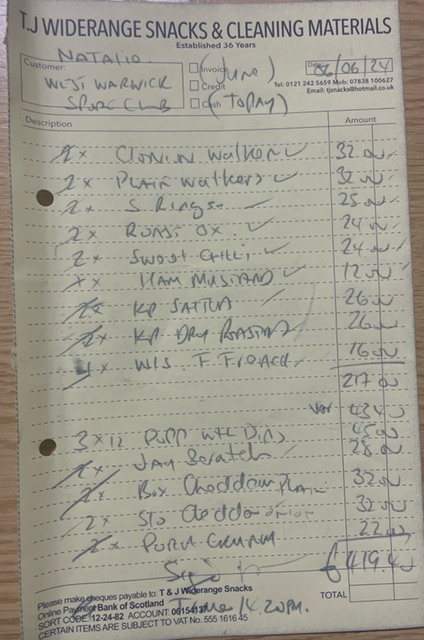 T.J WIDERANGE SNACKS & CLEANING MATERIALS
Established 36 Years
NATALIO
Customer:
WEST WARWICK
SPORT CLUB
Invoice
Credit
Cash
(June)
(TODAY)
Date 06/06/24
Tel: 0121 242 5659 Mob: 07838 100627
Email: tjsnacks@hotmail.co.uk
Description Amount
2x Walkers 32.00
2x PLAIN Walkers 32.00
2x S Rings 25.00
2x ROAST OX 24.00
2x SWEET CHILLI 24.00
HAM MUSTARD 12.00
2x KP SALTED 26.00
2x KP DRY ROASTED 26.00
1x W/S 16.00
217.00
VAT 43.40
3x12 45.00
2x JAY Scratch 28.00
2x Box Cheddar PLAIN 32.00
2x Cheddar onion 32.00
2x PORK 22.00
£419.40
TOTAL
Please make cheques payable to: T & J Widerange Snacks
Online Payment Bank of Scotland
SORT CODE: 12-24-82 ACCOUNT:
4.20PM.
CERTAIN ITEMS ARE SUBJECT TO VAT No. 555 1616 45